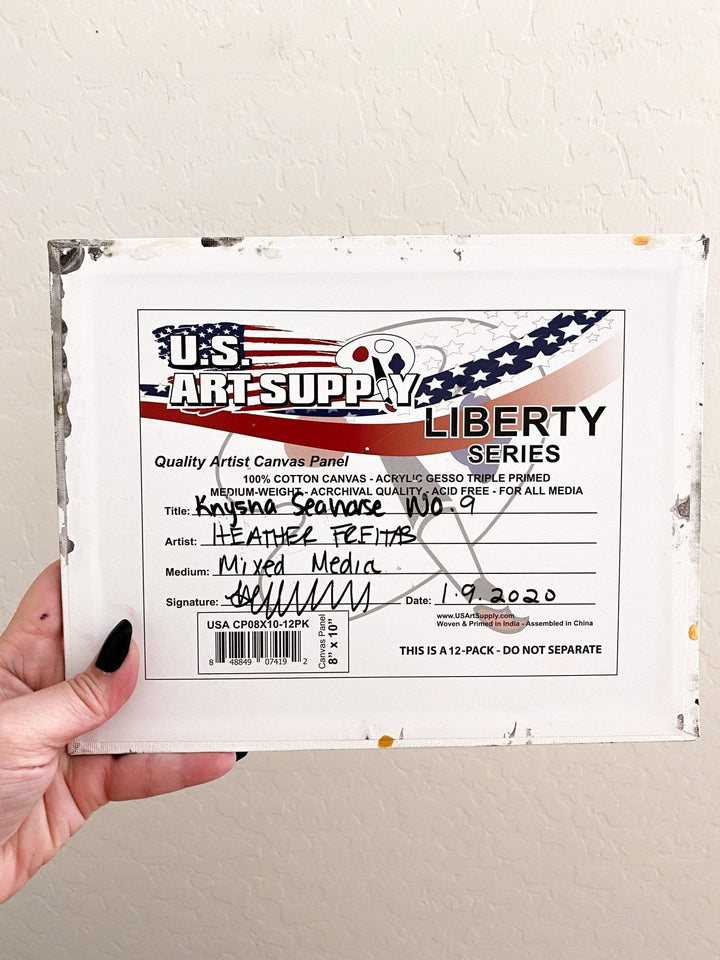 U.S.
ART SUPPLY
LIBERTY
SERIES
Quality Artist Canvas Panel
100% COTTON CANVAS - ACRYLIC GESSO TRIPLE PRIMED
MEDIUM-WEIGHT - ACRCHIVAL QUALITY - ACID FREE - FOR ALL MEDIA
Title: Knysna Seahorse No. 9
Artist: HEATHER FREITAS
Medium: Mixed Media
Signature:
Date: 1.9.2020
www.USArtSupply.com
Woven & Primed in India - Assembled in China
USA CP08X10-12PK
8 48849 07419 2
Canvas Panel
8" x 10"
THIS IS A 12-PACK - DO NOT SEPARATE